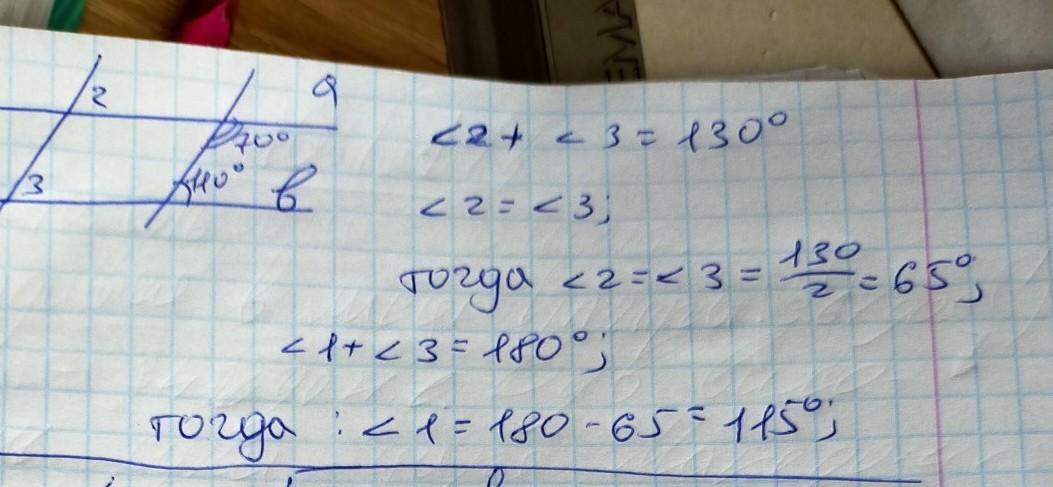 ЕМА
2
a
70°
3
110°
в
<2 + <3 = 130°
<2 = <3;
тогда <2 = <3 = 130/2 = 65°;
<1 + <3 = 180°;
тогда : <1 = 180 - 65 = 115°;